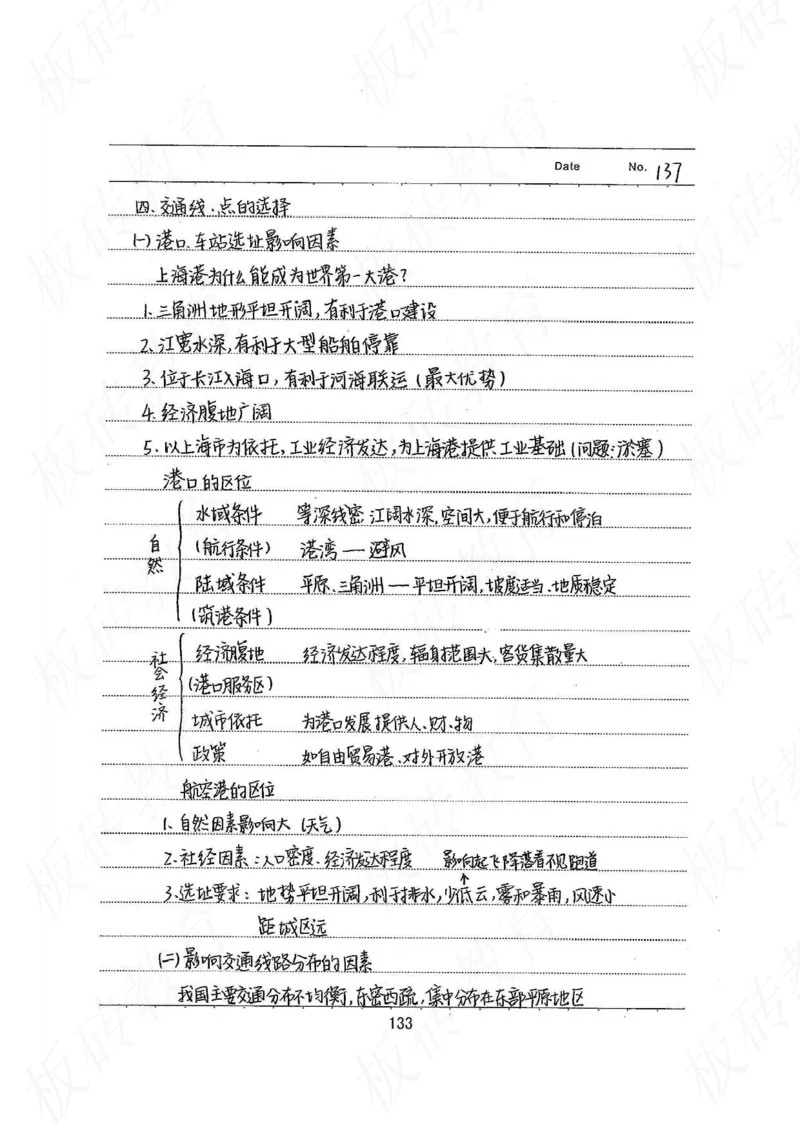 Date No. 137
四.交通线、点的选择
(一)港口、车站选址影响因素
上海港为什么能成为世界第一大港?
1.三角洲地形平坦开阔,有利于港口建设
2.江宽水深,有利于大型船舶停靠
3.位于长江入海口,有利于河海联运(最大优势)
4.经济腹地广阔
5.以上海市为依托,工业经济发达,为上海港提供工业基础(问题:淤塞)
港口的区位
自然
水域条件 等深线密 江阔水深,空间大,便于航行和停泊
(航行条件) 港湾——避风
陆域条件 平原、三角洲——平坦开阔,坡度适当、地质稳定
(筑港条件)
社会经济
经济腹地 经济发达程度,辐射范围大,客货集散量大
(港口服务区)
城市依托 为港口发展提供人、财、物
政策 如自由贸易港、对外开放港
航空港的区位
1、自然因素影响大(天气)
2.社经因素:人口密度、经济发达程度 影响起飞降落看不见跑道
3.选址要求:地势平坦开阔,利于排水,少低云,雾和暴雨,风速小
距城区远
(二)影响交通线路分布的因素
我国主要交通分布不均衡,东密西疏,集中分布在东部平原地区
133
板砖教育